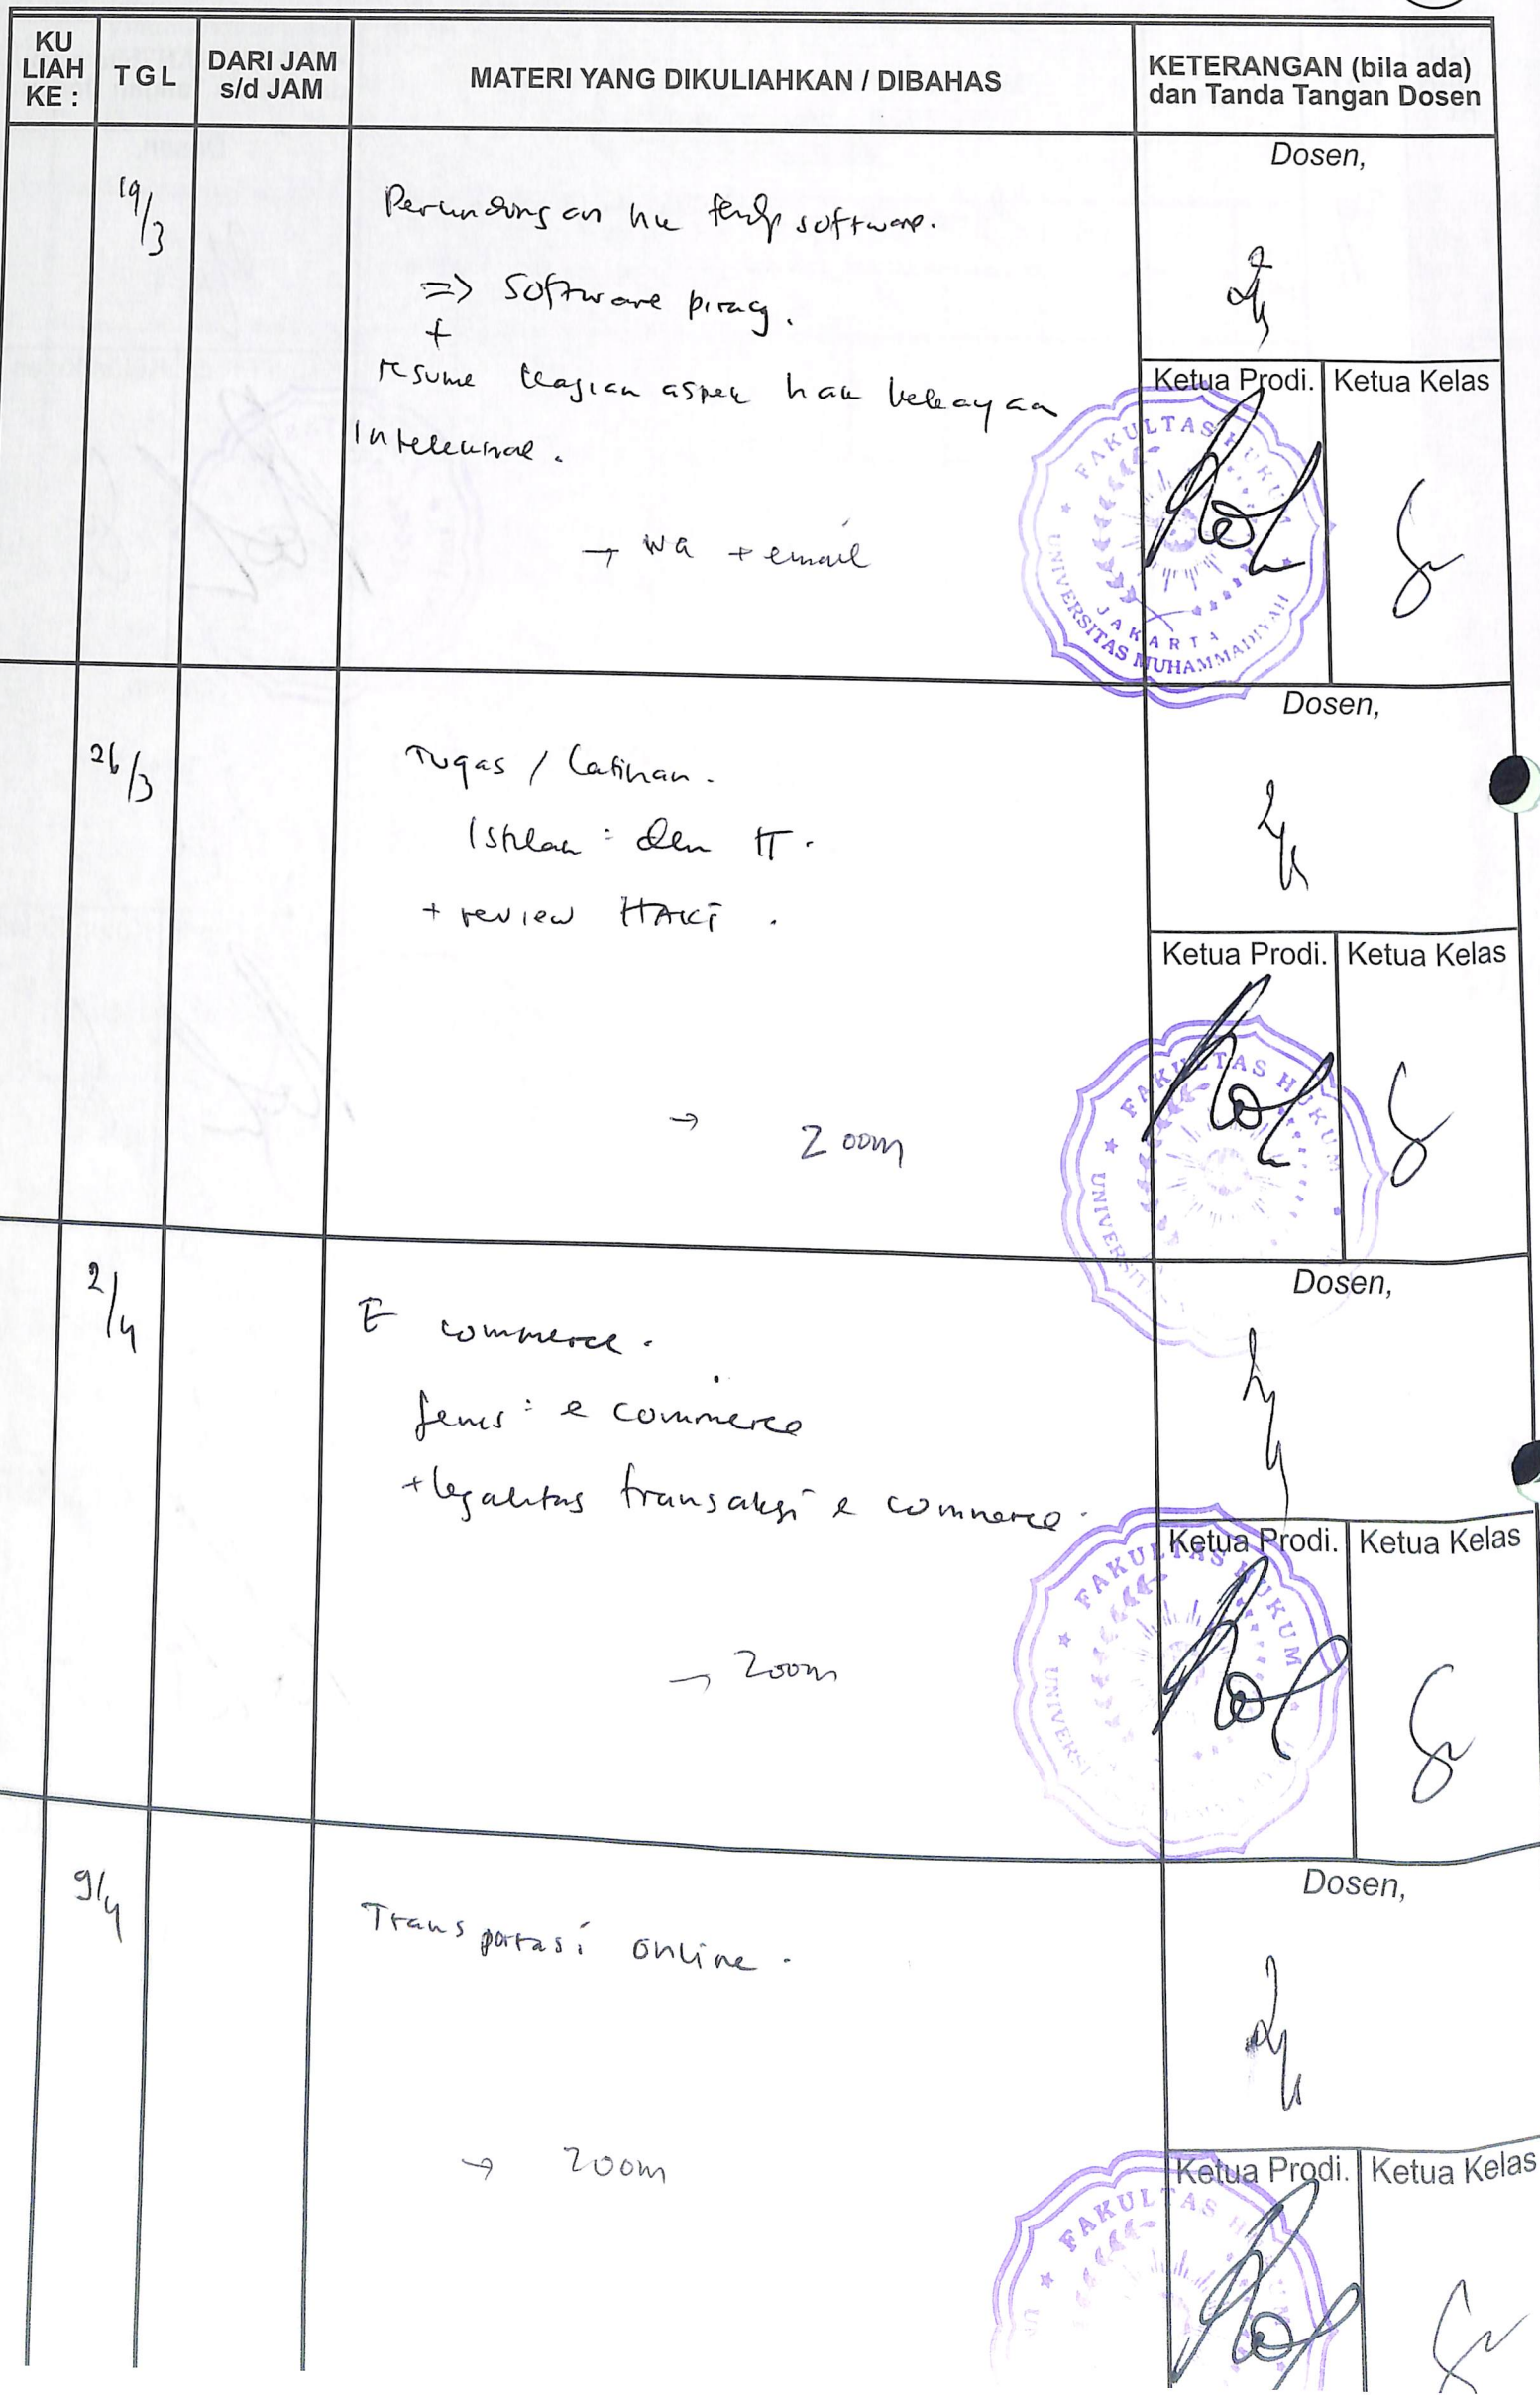 KU
LIAH
KE :
TGL
DARI JAM
s/d JAM
MATERI YANG DIKULIAHKAN / DIBAHAS
KETERANGAN (bila ada)
dan Tanda Tangan Dosen
19/3
software.
=> Software piracy.
+
resume kajian aspek hak kekayaan
Intelektual.
→ wa + email
Dosen,
Ketua Prodi.
Ketua Kelas
FAKULTAS HUKUM
UNIVERSITAS MUHAMMADIYAH
JAKARTA
26/3
Tugas / Latihan.
Istilah : dlm IT.
+ review HAKI.
→ Zoom
Dosen,
Ketua Prodi.
Ketua Kelas
FAKULTAS HUKUM
UNIVERSIT
2/4
E commerce.
Jenis : e commerce
+ legalitas transaksi e commerce.
→ Zoom
Dosen,
Ketua Prodi.
Ketua Kelas
FAKULTAS HUKUM
UNIVERSI
9/4
Transportasi online.
→ Zoom
Dosen,
Ketua Prodi.
Ketua Kelas
FAKULTAS